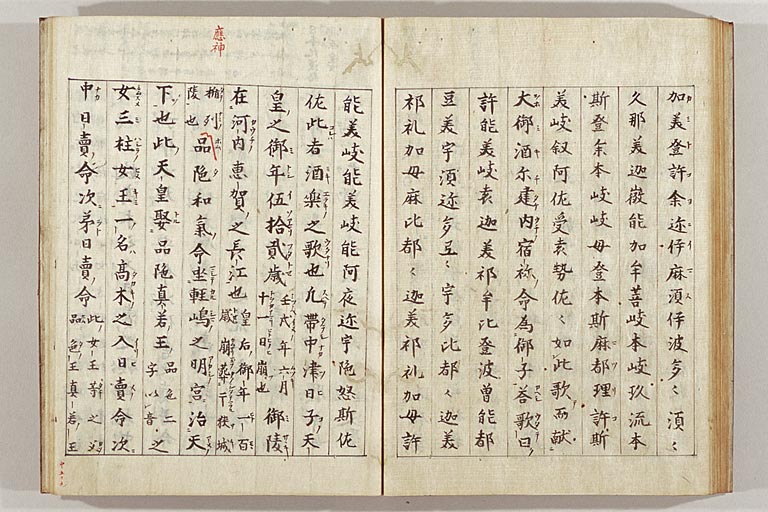 加美登許余迩伊麻須伊波多々須々
久那美迦微能加牟菩岐本岐玖流本
斯登余本岐岐母登本斯麻都理許斯
美岐叙阿佐受袁勢佐々如此歌而献
大御酒尓建内宿祢命為御子荅歌曰
許能美岐袁迦美祁牟比登波曽能都
豆美宇須迩多弖々宇多比都々迦美
祁礼加母麻比都々迦美祁礼加母許
應神
能美岐能美岐能阿夜迩宇陁怒斯佐
佐此者酒楽之歌也凢帯中津日子天
皇之御年伍拾貳歳壬戌年六月十一日崩也御陵
在河内恵賀之長江也皇后御年一百歳崩葬于狭城
楯列陵也品陁和氣命坐軽嶋之明宮治天
下也此天皇娶品陁真若王品陁二字以音之
女三柱女王一名髙木之入日賣命次
中日賣命次弟日賣命此女王等之父品陁真若王